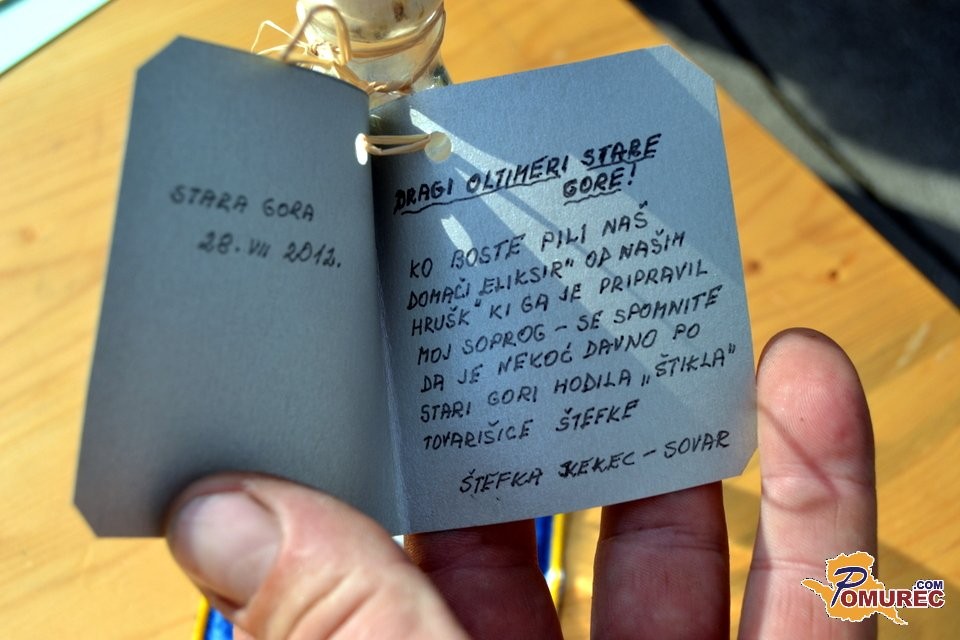 STARA GORA
28. VII 2012.
DRAGI OLTIMERI STARE
GORE!
KO BOSTE PILI NAŠ
DOMAČI „ELIKSIR" OD NAŠIH
HRUŠK" KI GA JE PRIPRAVIL
MOJ SOPROG – SE SPOMNITE
DA JE NEKOĆ DAVNO PO
STARI GORI HODILA „ŠTIKLA"
TOVARIŠICE ŠTEFKE
ŠTEFKA KEKEC – SOVAR
POMUREC.COM